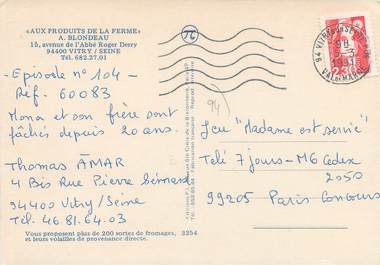 «AUX PRODUITS DE LA FERME»
A. BLONDEAU
15, avenue de l'Abbé Roger Derry
94 VITRY / SEINE
Tél. 682.27.01
Episode n° 104 -
Réf. 60083
Mona et son frère sont
fâchés depuis 20 ans.
Thomas AMAR
4 Bis Rue Pierre Sémard
94400 Vitry/Seine
Tél. 46.81.64.03
Vous proposent plus de 200 sortes de fromages,
et leurs volailles de provenance directe.
3254
94
Jeu "Madame est servie"
Télé 7 jours - M6 Cedex
2050
99205 Paris Concours